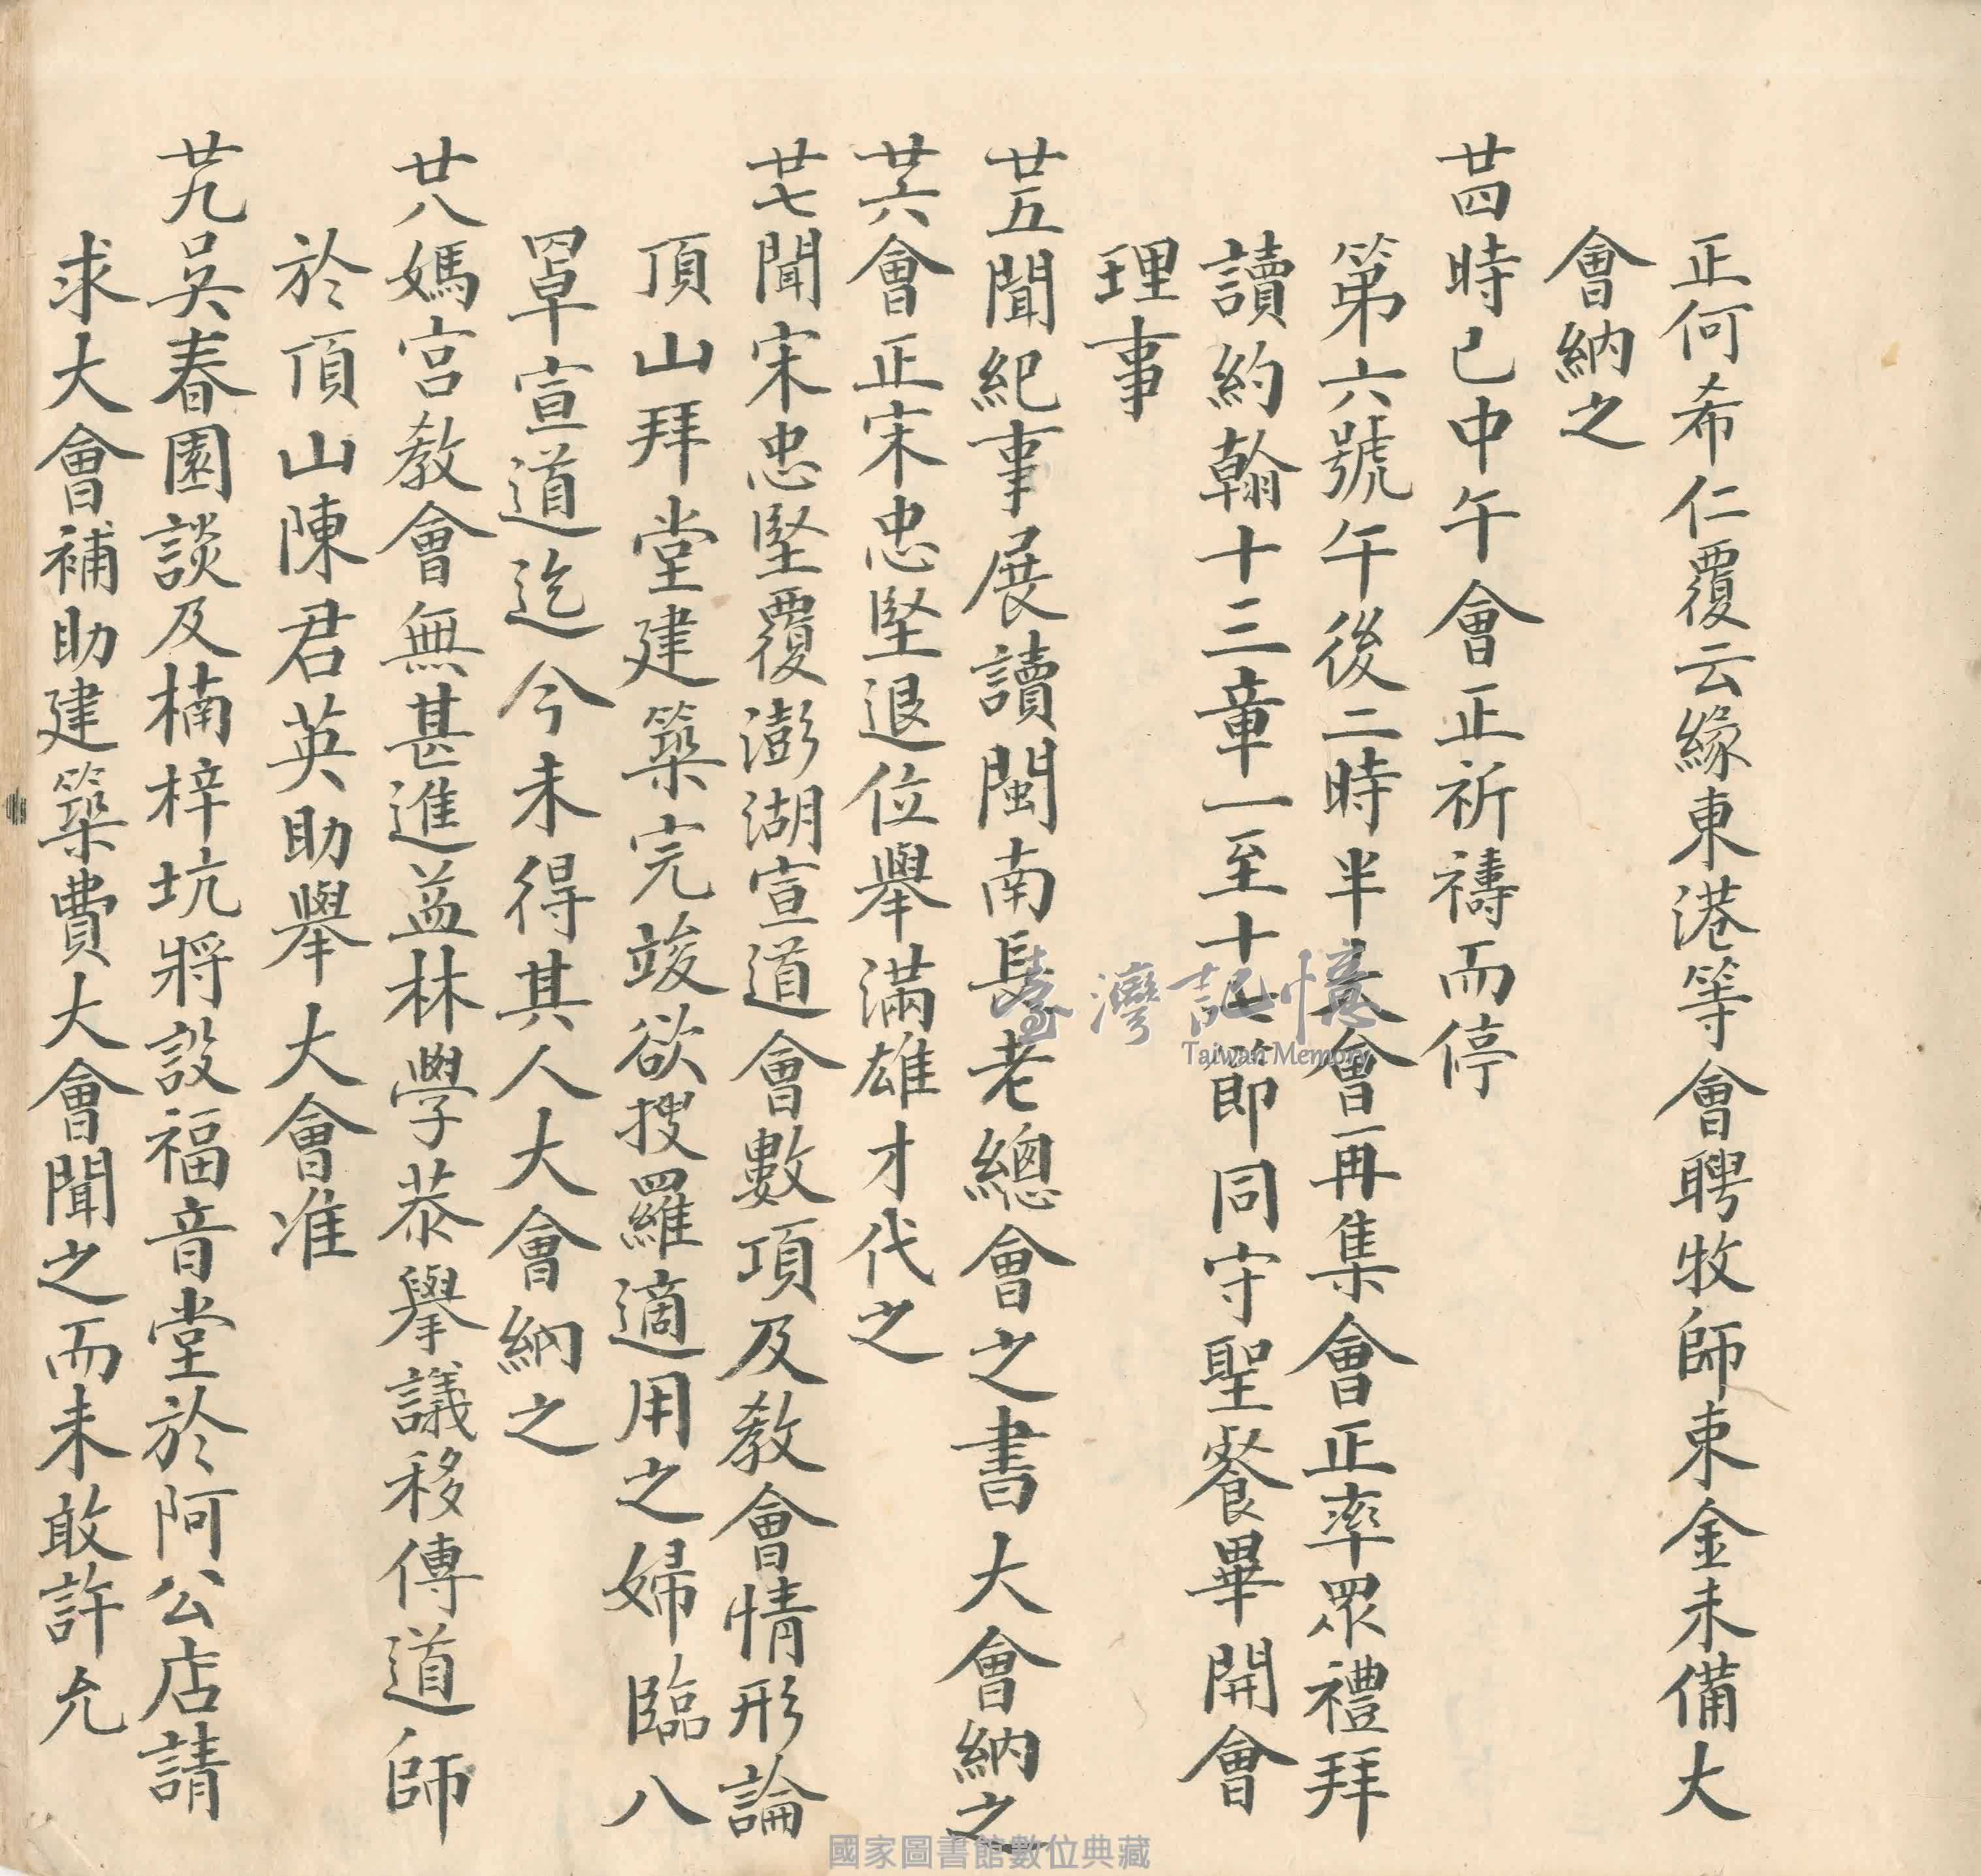 正何希仁覆云緣東港等會聘牧師束金未備大
會納之
廿四時已中午會正祈禱而停
第六號午後二時半大會再集會正率眾禮拜
讀約翰十三章一至十七節同守聖餐畢開會
理事
廿五聞紀事展讀閩南長老總會之書大會納之
廿六會正宋忠堅退位舉滿雄才代之
廿七聞宋忠堅覆澎湖宣道會數項及教會情形論
頂山拜堂建築完竣欲搜羅適用之婦臨八
罩宣道迄今未得其人大會納之
廿八媽宮教會無甚進益林學恭舉議移傳道師
於頂山陳君英助舉大會准
廿九吳春園談及楠梓坑將設福音堂於阿公店請
求大會補助建築費大會聞之而未敢許允
臺灣記憶
Taiwan Memory
國家圖書館數位典藏